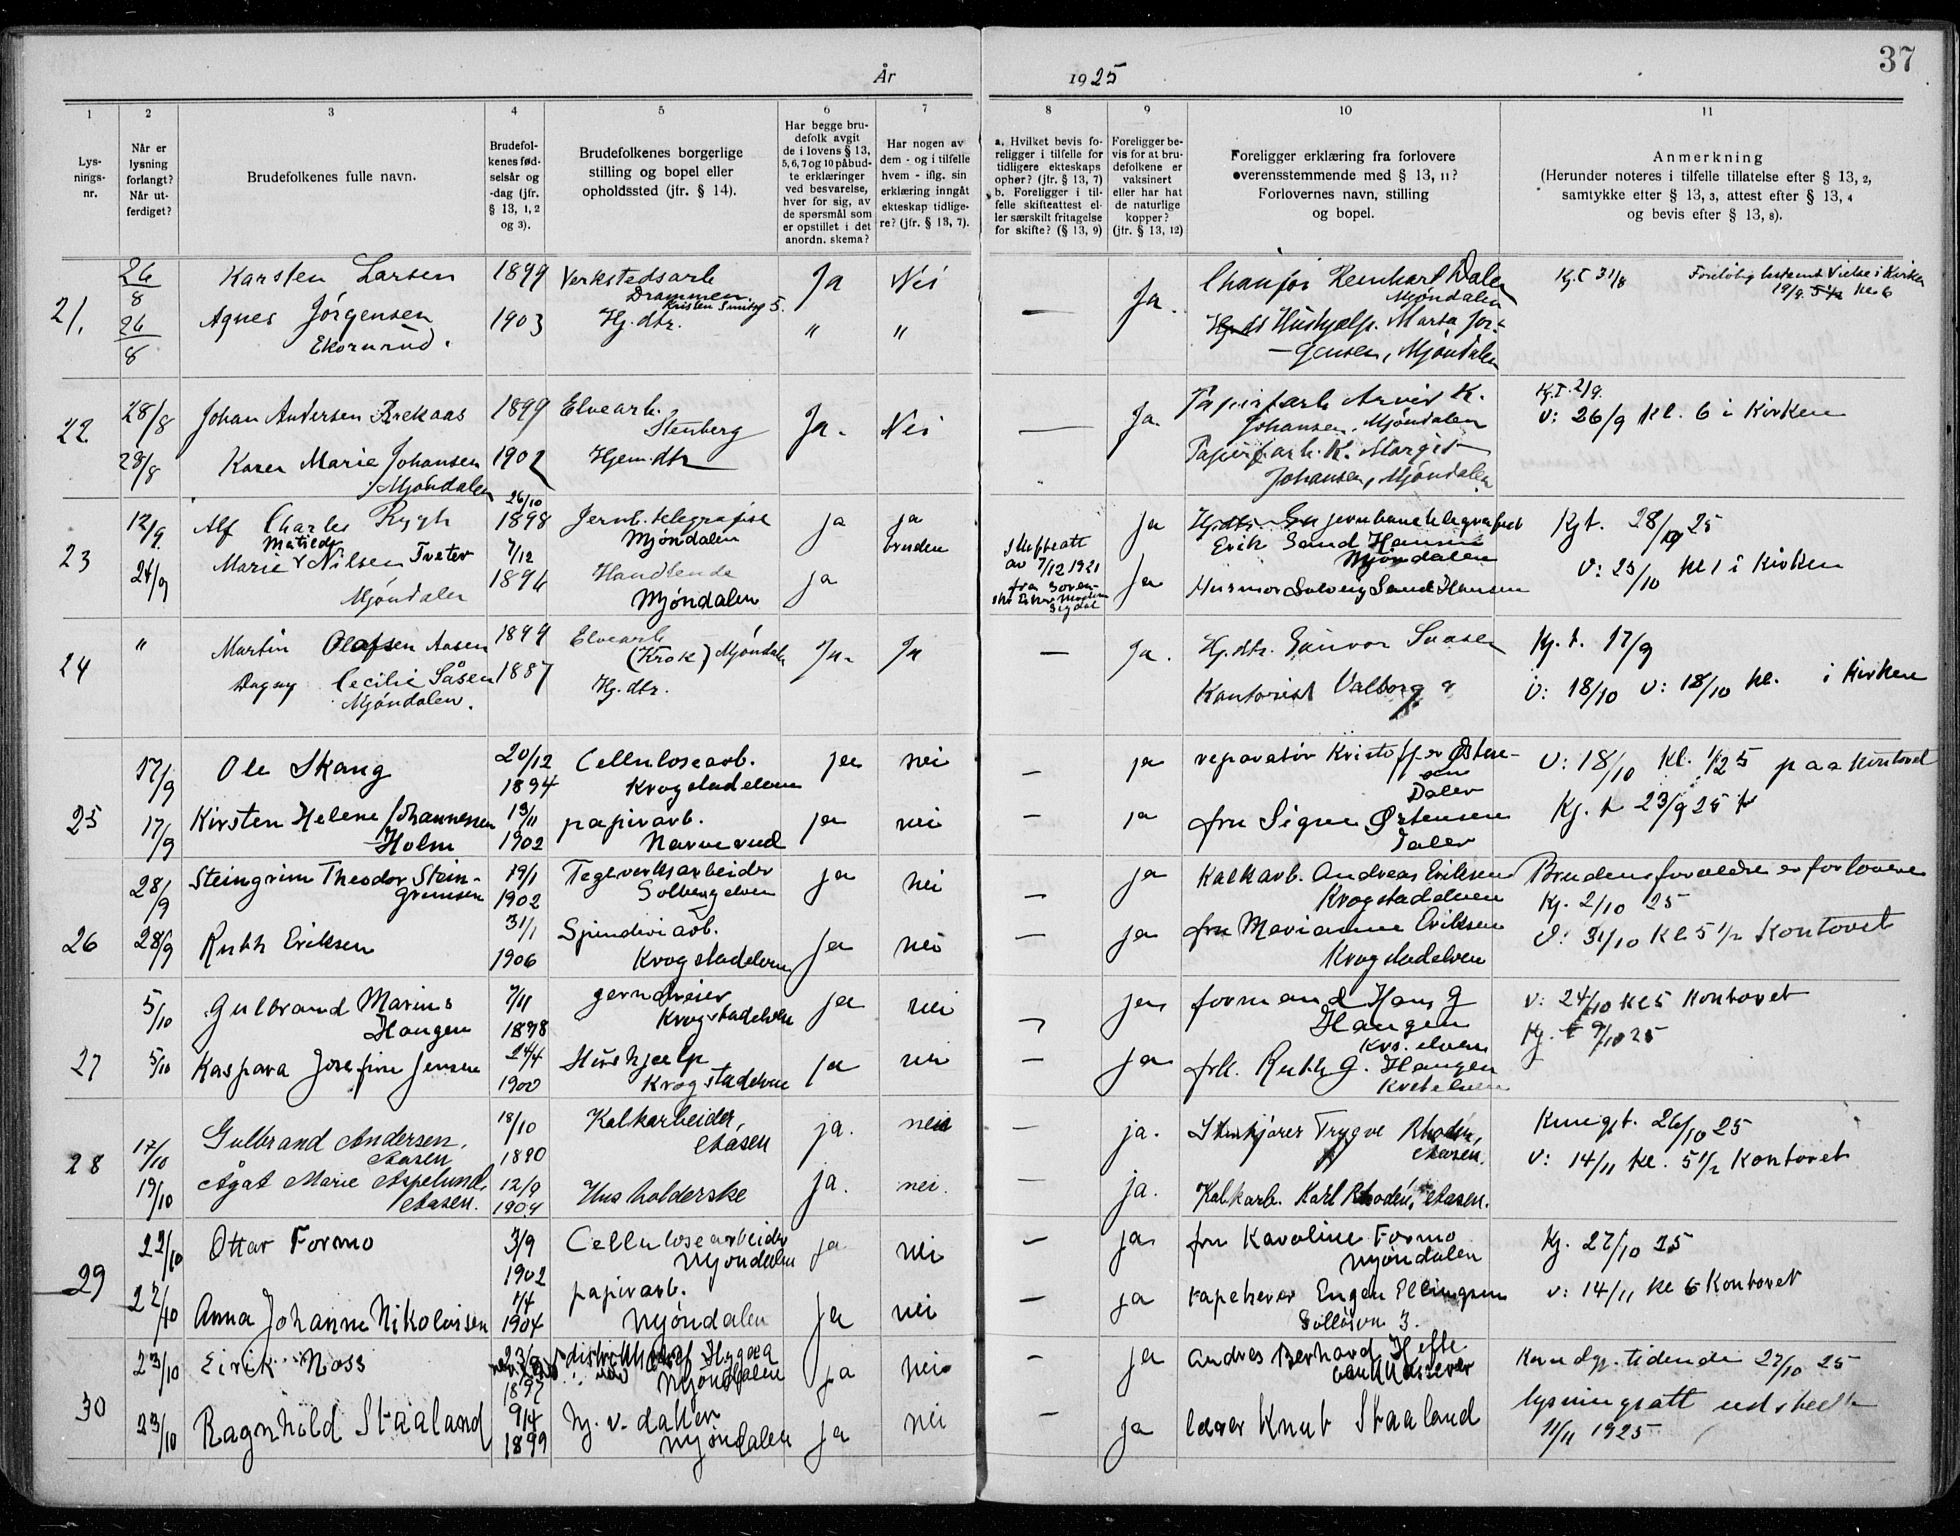 År 1925 37
1 2 3 4 5 6 7 8 9 10 11
Lys-
nings-
nr.
Når er
lysning
forlangt?
Når ut-
ferdiget?
Brudefolkenes fulle navn.
Brudefol-
kenes fød-
selsår og
-dag (jfr.
§ 13, 1, 2
og 3).
Brudefolkenes borgerlige
stilling og bopel eller
opholdssted (jfr. § 14).
Har begge bru-
defolk avgit
de i lovens § 13,
5, 6, 7 og 10 påbud-
te erklæringer
ved besvarelse,
hver for sig, av
de spørsmål som
er opstillet i det
anordn. skema?
Har nogen av
dem - og i tilfelle
hvem - iflg. sin
erklæring inngått
ekteskap tidlige-
re? (jfr. § 13, 7).
a. Hvilket bevis fo-
religger i tilfelle for
tidligere ekteskaps
ophør? (jfr. § 13, 7)
b. Foreligger i til-
felle skifteattest el-
ler særskilt fritagelse
for skifte? (§ 13, 9)
Foreligger be-
vis for at bru-
defolkene er
vaksinert
eller har hat
de naturlige
kopper?
(jfr. § 13, 12)
Foreligger erklæring fra forlovere
overensstemmende med § 13, 11?
Forlovernes navn, stilling
og bopel.
Anmerkning
(Herunder noteres i tilfelle tillatelse efter § 13, 2,
samtykke efter § 13, 3, attest efter § 13, 4
og bevis efter § 13, 8).
21. 26/8 Karsten Larsen 1899 Verkstedsarb Ja Nei
Drammen
Kristen 5.
26/8 Agnes Jørgensen 1903 Hj. dtr. " "
Ekornrud.
— Ja. Reinhart Dalen
Mjøndalen
Hushjælp. Marta Jør-
gensen, Mjøndalen
Kj.T 31/8 Vielse i Kirken
19/9 5½ kl. 6
22 28/8 Johan Andersen Brekaas 1899 Elvearb. Ja. Nei
Stenberg
28/8 Karen Marie Johansen 1902 Hjem. dtr
Mjøndalen
— Ja. Papirfarb Arvid K.
Johansen, Mjøndalen
Papirfarb. K. Margit
Johansen, Mjøndalen
Kj.T. 2/9.
V: 26/9 Kl. 6 i Kirken
23 12/9. Alf Charles Rygh 26/10 1898 Jernb. telegrafist ja ja
Mjøndalen bruden
24/9 Marie Matilde Nilsen Tveter 7/12 1896 Handlende ja
Mjøndalen Mjøndalen
Skifteatt
av 7/12 1921
fra Soren-
Sigdal
ja jernbanetelegrafist
Erik Sand Hansen
Mjøndalen
ja Husmor Solveig Sand Hansen
Kjt. 28/9 25
V: 25/10 kl 1 i Kirken
24 " Martin Olafsen Aasen 1899 Elvearb Ja. Ja
(Krok) Mjøndalen
Dagny Cecilie Såsen 1887 Hj. dtr.
Mjøndalen.
— Ja. Hj. dtr. Gunvor Saasen
Kontorist Valborg
Kj. t. 17/9
V: 18/10 V: 18/10 kl. i Kirken
25 17/9 Ole Skang 20/12 1894 Cellulosearb. ja nei
Krogstadelven
17/9 Kirsten Helene Johannessen 13/11 1902 papirarb. ja nei
Holm Narverud
— ja reparatør Kristoffer Østen-
sen
Daler
— ja fru Signe Østensen
Daler
V: 18/10 Kl. 1/2 5 paa kontoret
Kj. t 23/9 25
26 28/9 Steingrim Theodor Stein- 19/1 1902 Tegeverksarbeider ja nei
grimsen Solbergelven
28/9 Ruth Eriksen 31/1 1906 Spinderiarb. Ja nei
Krogstadelven
— ja Kalkarb. Andreas Eriksen
Krogstadelven
— ja fru Marianne Eriksen
Krogstadelven
Brudens forældre er forlovere
Kj. 2/10 25
V: 31/10 Kl 5 1/2 Kontoret
27 5/10 Gulbrand Marius 7/11 1898 jerndreier ja nei
Haugen Krogstadelven
5/10 Kaspara Josefine Jensen 24/4 1900 Hushjælp ja nei
Krogstadelven
— ja formand Hans G
Haugen
Kro. elven
— ja frk. Ruth G. Haugen
V: 24/10 kl 5 Kontoret
Kj. t 9/10 25
28 17/10 Gulbrand Andersen, 18/10 1890 Kalkarbeider, ja. nei
Aasen Aasen
19/10 Ågåt Marie Aspelund, 12/9 1904 Husholderske ja. nei.
Aasen.
— ja. Trygve Rhodén,
Aasen.
— ja. Kalkarb. Karl Rhodén, Aasen.
Kungjt. 26/10 25
V: 14/11 kl. 5 1/2 Kontoret
29 22/10 Ottar Formo 3/9 1902 Cellulosearbeider ja nei
Mjøndalen
22/10 Anna Johanne Nikolaisen 1/4 1904 papirarb. ja nei
Mjøndalen
— ja fru Karoline Formo
Mjøndalen
— ja tapetserer Eugen Ellingsen
3.
Kj. 27/10 25
V: 14/11 kl 6 Kontoret
30 23/10 Eirik Moss 1897 ja nei
Mjøndalen
23/10 Ragnhild Staaland 9/4 1899 hj. v. datter ja nei
Mjøndalen
— ja Andres Berhard Hefte
— ja lærer Knut Staaland
Kundgj. tidende 27/10 25
lysningsatt utstedt
11/11 1925